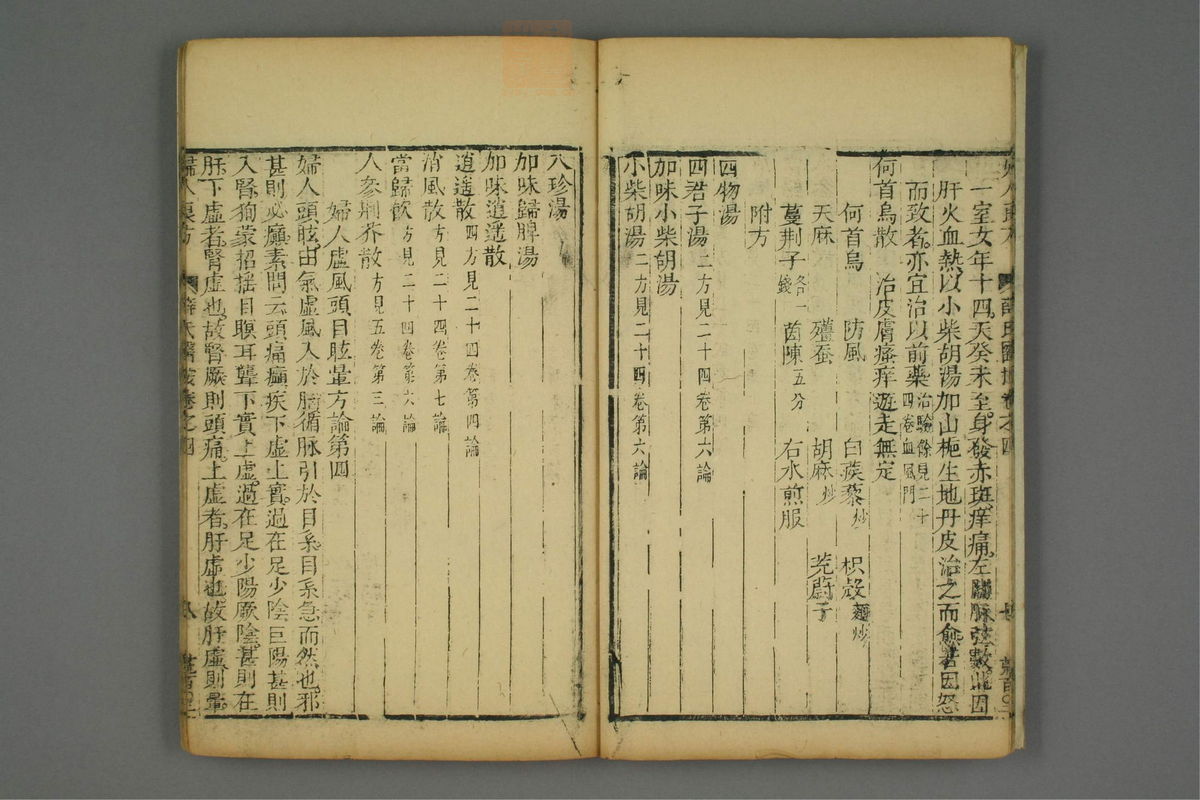 一室女年十四天癸未至身發赤斑痒痛左關脉弦數此因
肝火血熱以小柴胡湯加山梔生地丹皮治之而愈若因怒
而致者亦宜治以前藥治驗餘見二十四卷血風門
何首烏散 治皮膚瘙痒遊走無定
何首烏 防風 白蒺藜炒 枳殼麵炒
天麻 殭蚕 胡麻炒 茺蔚子
蔓荆子各一錢 茵陳五分 右水煎服
附方
四物湯
四君子湯二方見二十四卷第六論
加味小柴胡湯
小柴胡湯二方見二十四卷第六論
八珍湯
加味歸脾湯
加味逍遙散
逍遙散四方見二十四卷第四論
消風散方見二十四卷第七論
當歸飲方見二十四卷第六論
人參荆芥散方見五卷第三論
婦人虛風頭目眩暈方論第四
婦人頭眩由氣虛風入於腦循脉引於目系目系急而然也邪
甚則必癲素問云頭痛癲疾下虛上實過在足少陰巨陽甚則
入腎狥蒙招搖目瞑耳聾下實上虛過在足少陽厥陰甚則在
肝下虛者腎虛也故腎厥則頭痛上虛者肝虛也故肝虛則暈
婦人良方 卷之四